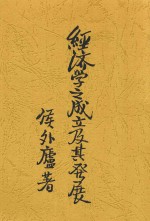 經済学之成立及其发展
侯外廬著